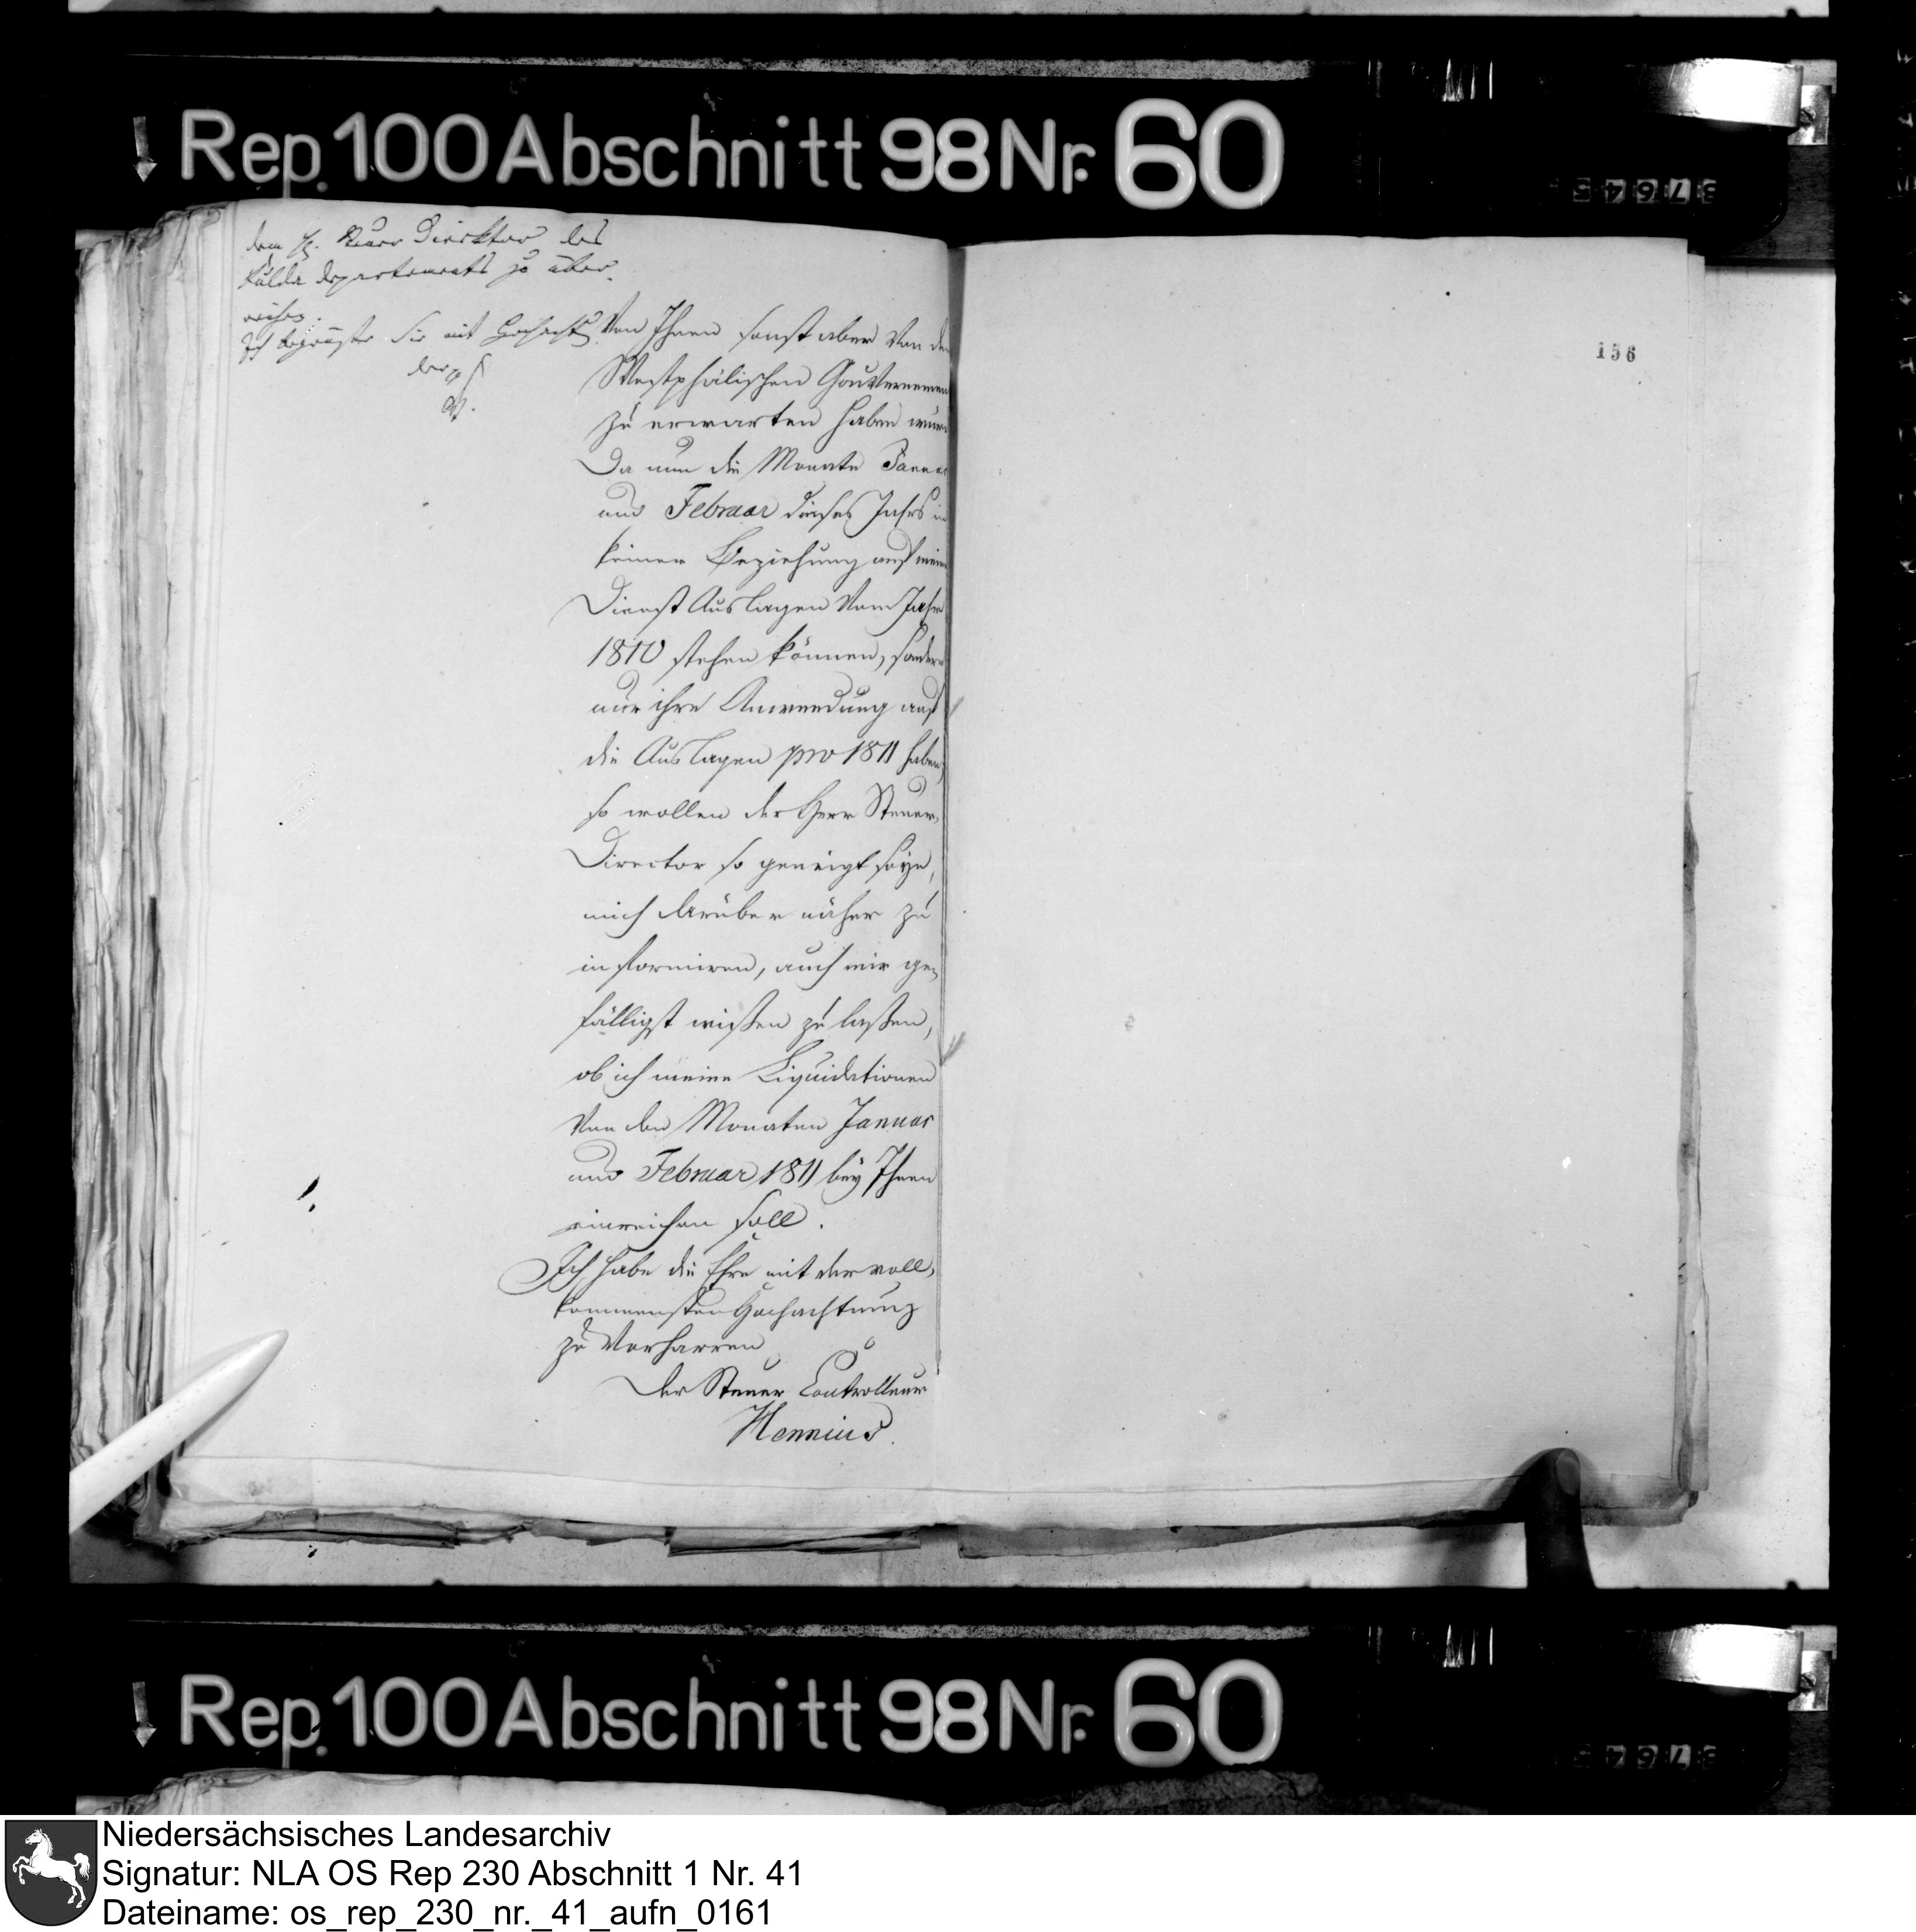 Rep. 100 Abschnitt 98 Nr. 60
37645
dem H. Steuer Direktor des
Fulda departements zu über-
reichen.
Ich begrüße Sie mit Hochacht
156
von Ihnen sonst aber von dem
Westphälischen Gouvernemen
zu erwarten haben würd
Da nun die Monate Januar
und Februar dieses Jahrs in
keiner Beziehung auf meine
Dienst Auslagen vom Jahr
1810 stehen können, sondern
nur ihre Anwendung auf
die Auslagen pro 1811 haben,
so wollen der Herr Steuer,
Director so geneigt seyn,
mich darüber näher zu
informiren, auch mir ge,
fälligst wißen zu laßen,
ob ich meine Liquidationen
von den Monaten Januar
und Februar 1811 bey Ihnen
einreichen soll.
Ich habe die Ehre mit der voll,
kommensten Hochachtung
zu verharren
der Steuer Controlleur
Hennius.
Rep. 100 Abschnitt 98 Nr. 60
Niedersächsisches Landesarchiv
Signatur: NLA OS Rep 230 Abschnitt 1 Nr. 41
Dateiname: os_rep_230_nr._41_aufn_0161